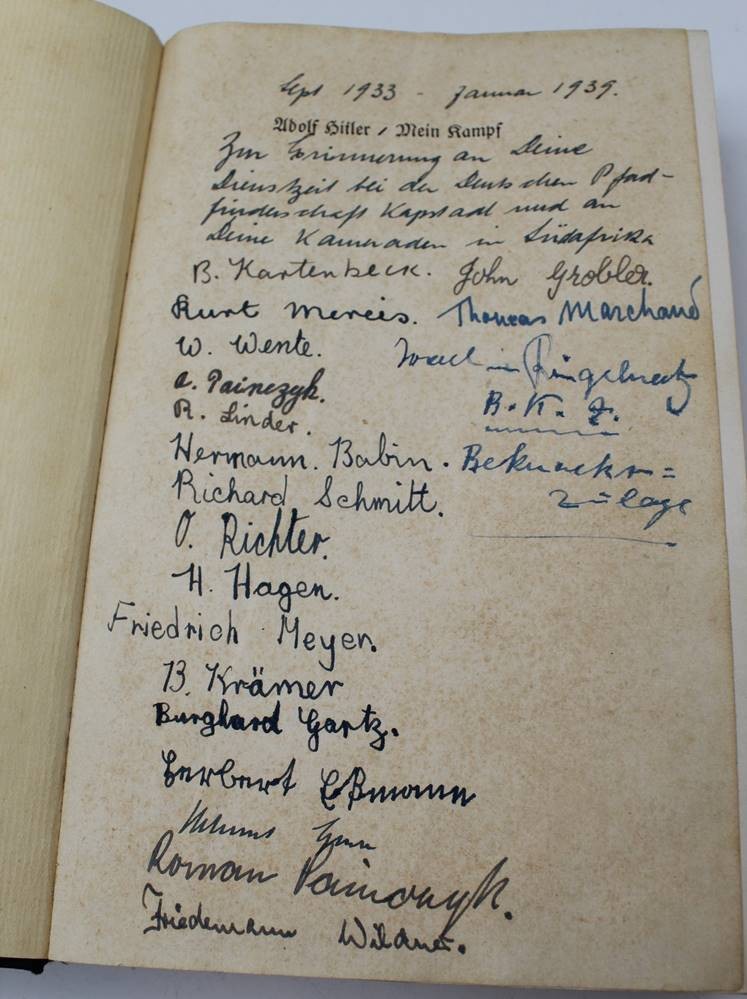 Sept 1933 - Januar 1939.
Adolf Hitler / Mein Kampf
Zur Erinnerung an Deine
Dienstzeit bei der Deutschen Pfad-
finderschaft Kapstadt und an
Deine Kameraden in Südafrika
B. Kartenbeck. John Grobler.
Kurt Thomas Marchand
W. Wente.
in
a. Painczyk. B. K. Z.
R. Linder.
Hermann. Babin.
Richard Schmitt. zulage
O. Richter.
H. Hagen.
Friedrich Meyer.
B. Krämer
Burghard Gartz.
Herbert Eßmann
Roman Painczyk.
Friedemann Wildner.